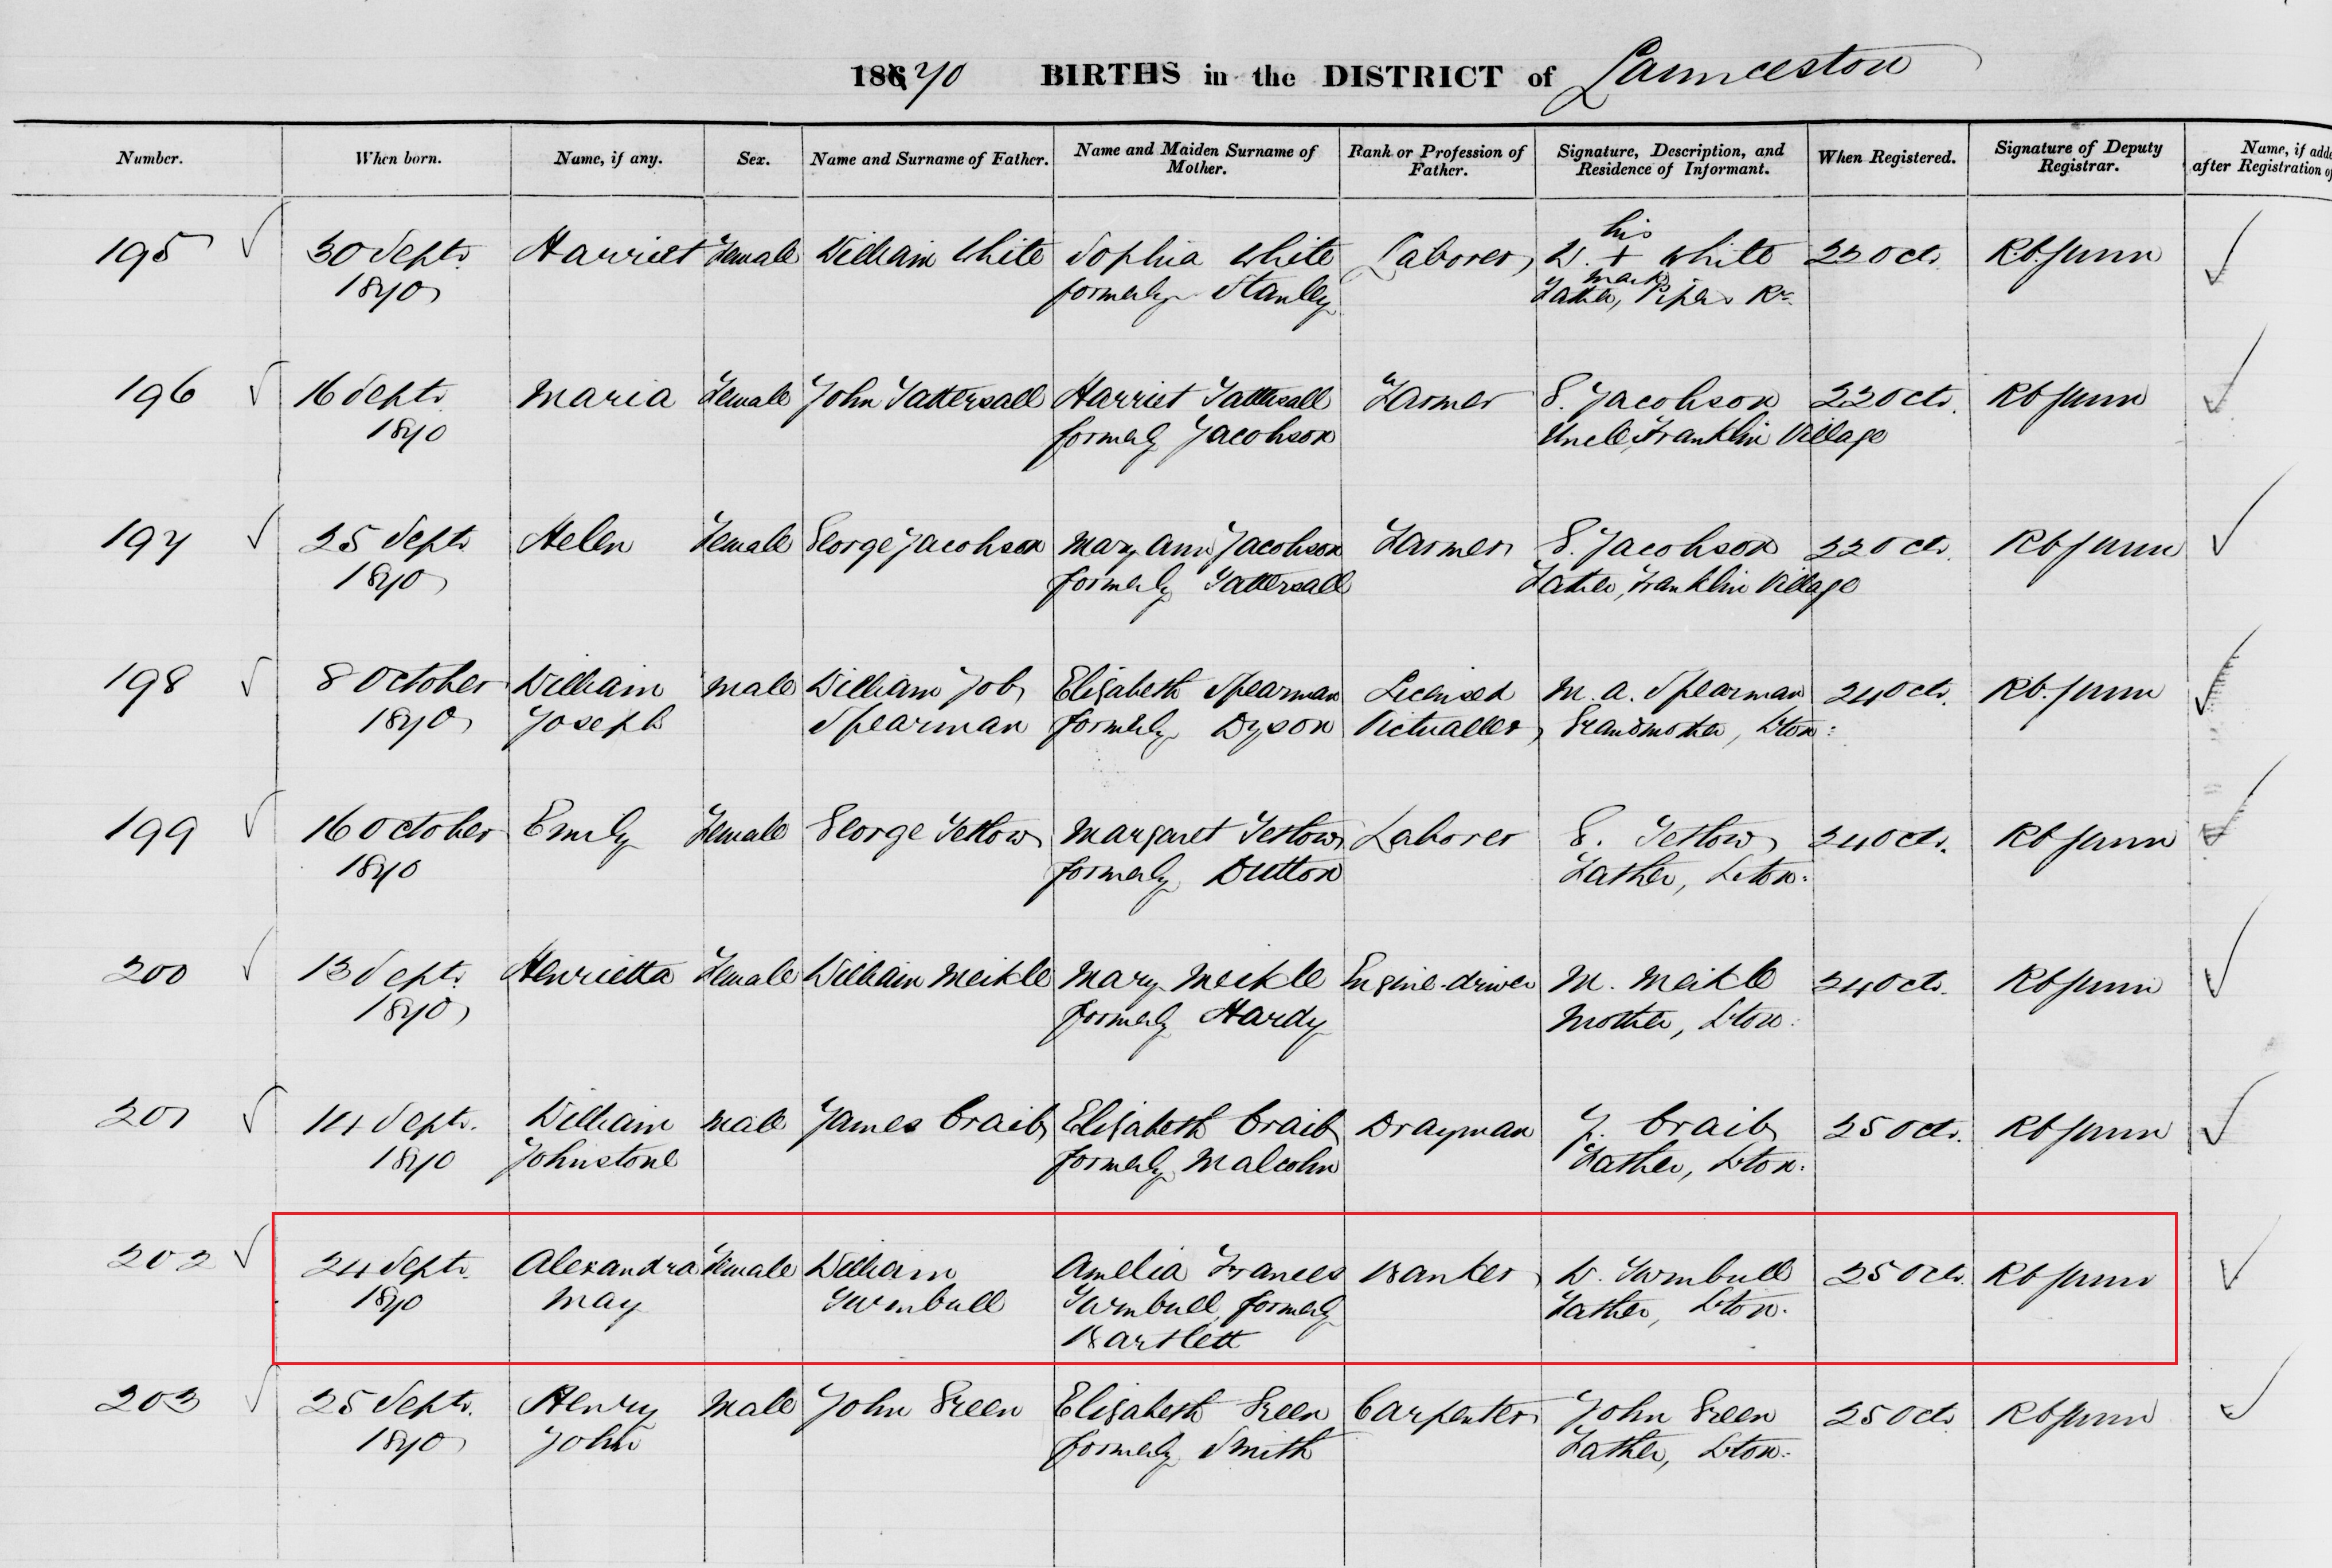 1870 BIRTHS in the DISTRICT of Launceston
Number. When born. Name, if any. Sex. Name and Surname of Father. Name and Maiden Surname of Mother. Rank or Profession of Father. Signature, Description, and Residence of Informant. When Registered. Signature of Deputy Registrar. Name, if adde after Registration of
his
195 30 Septr. Harriet Female William White Sophia White Laborer, W. + White 22 Octr.
mark
1870 formerly Stanley Father, Pipers Rr.
196 16 Septr. Maria Female John Tattersall Harriet Tattersall Farmer G. Jacobson 22 Octr.
1870 formerly Jacobson Uncle, Franklin Village
197 25 Septr. Helen Female George Jacobson Mary Ann Jacobson Farmer G. Jacobson 22 Octr.
1870 formerly Tattersall Father, Franklin Village
198 8 October William Male William Job Elizabeth Spearman Licensed M. A. Spearman 24 Octr.
1870 Joseph Spearman formerly Dyson Victualler, Grandmother, Lton:
199 16 October Emily Female George Tetlow Margaret Tetlow Laborer G. Tetlow 24 Octr.
1870 formerly Dutton Father, Lton:
200 13 Septr. Henrietta Female William Meikle Mary Meikle Engine-driver M. Meikle 24 Octr.
1870 formerly Hardy Mother, Lton:
201 14 Septr. William Male James Craib Elizabeth Craib Drayman J. Craib 25 Octr.
1870 Johnstone formerly Malcolm Father, Lton:
202 24 Septr. Alexandra Female William Amelia Frances Banker, W. Turnbull 25 Octr.
1870 May Turnbull Turnbull, formerly Father, Lton.
Bartlett
203 25 Septr. Henry Male John Green Elizabeth Green Carpenter, John Green 25 Octr.
1870 John formerly Smith Father, Lton: